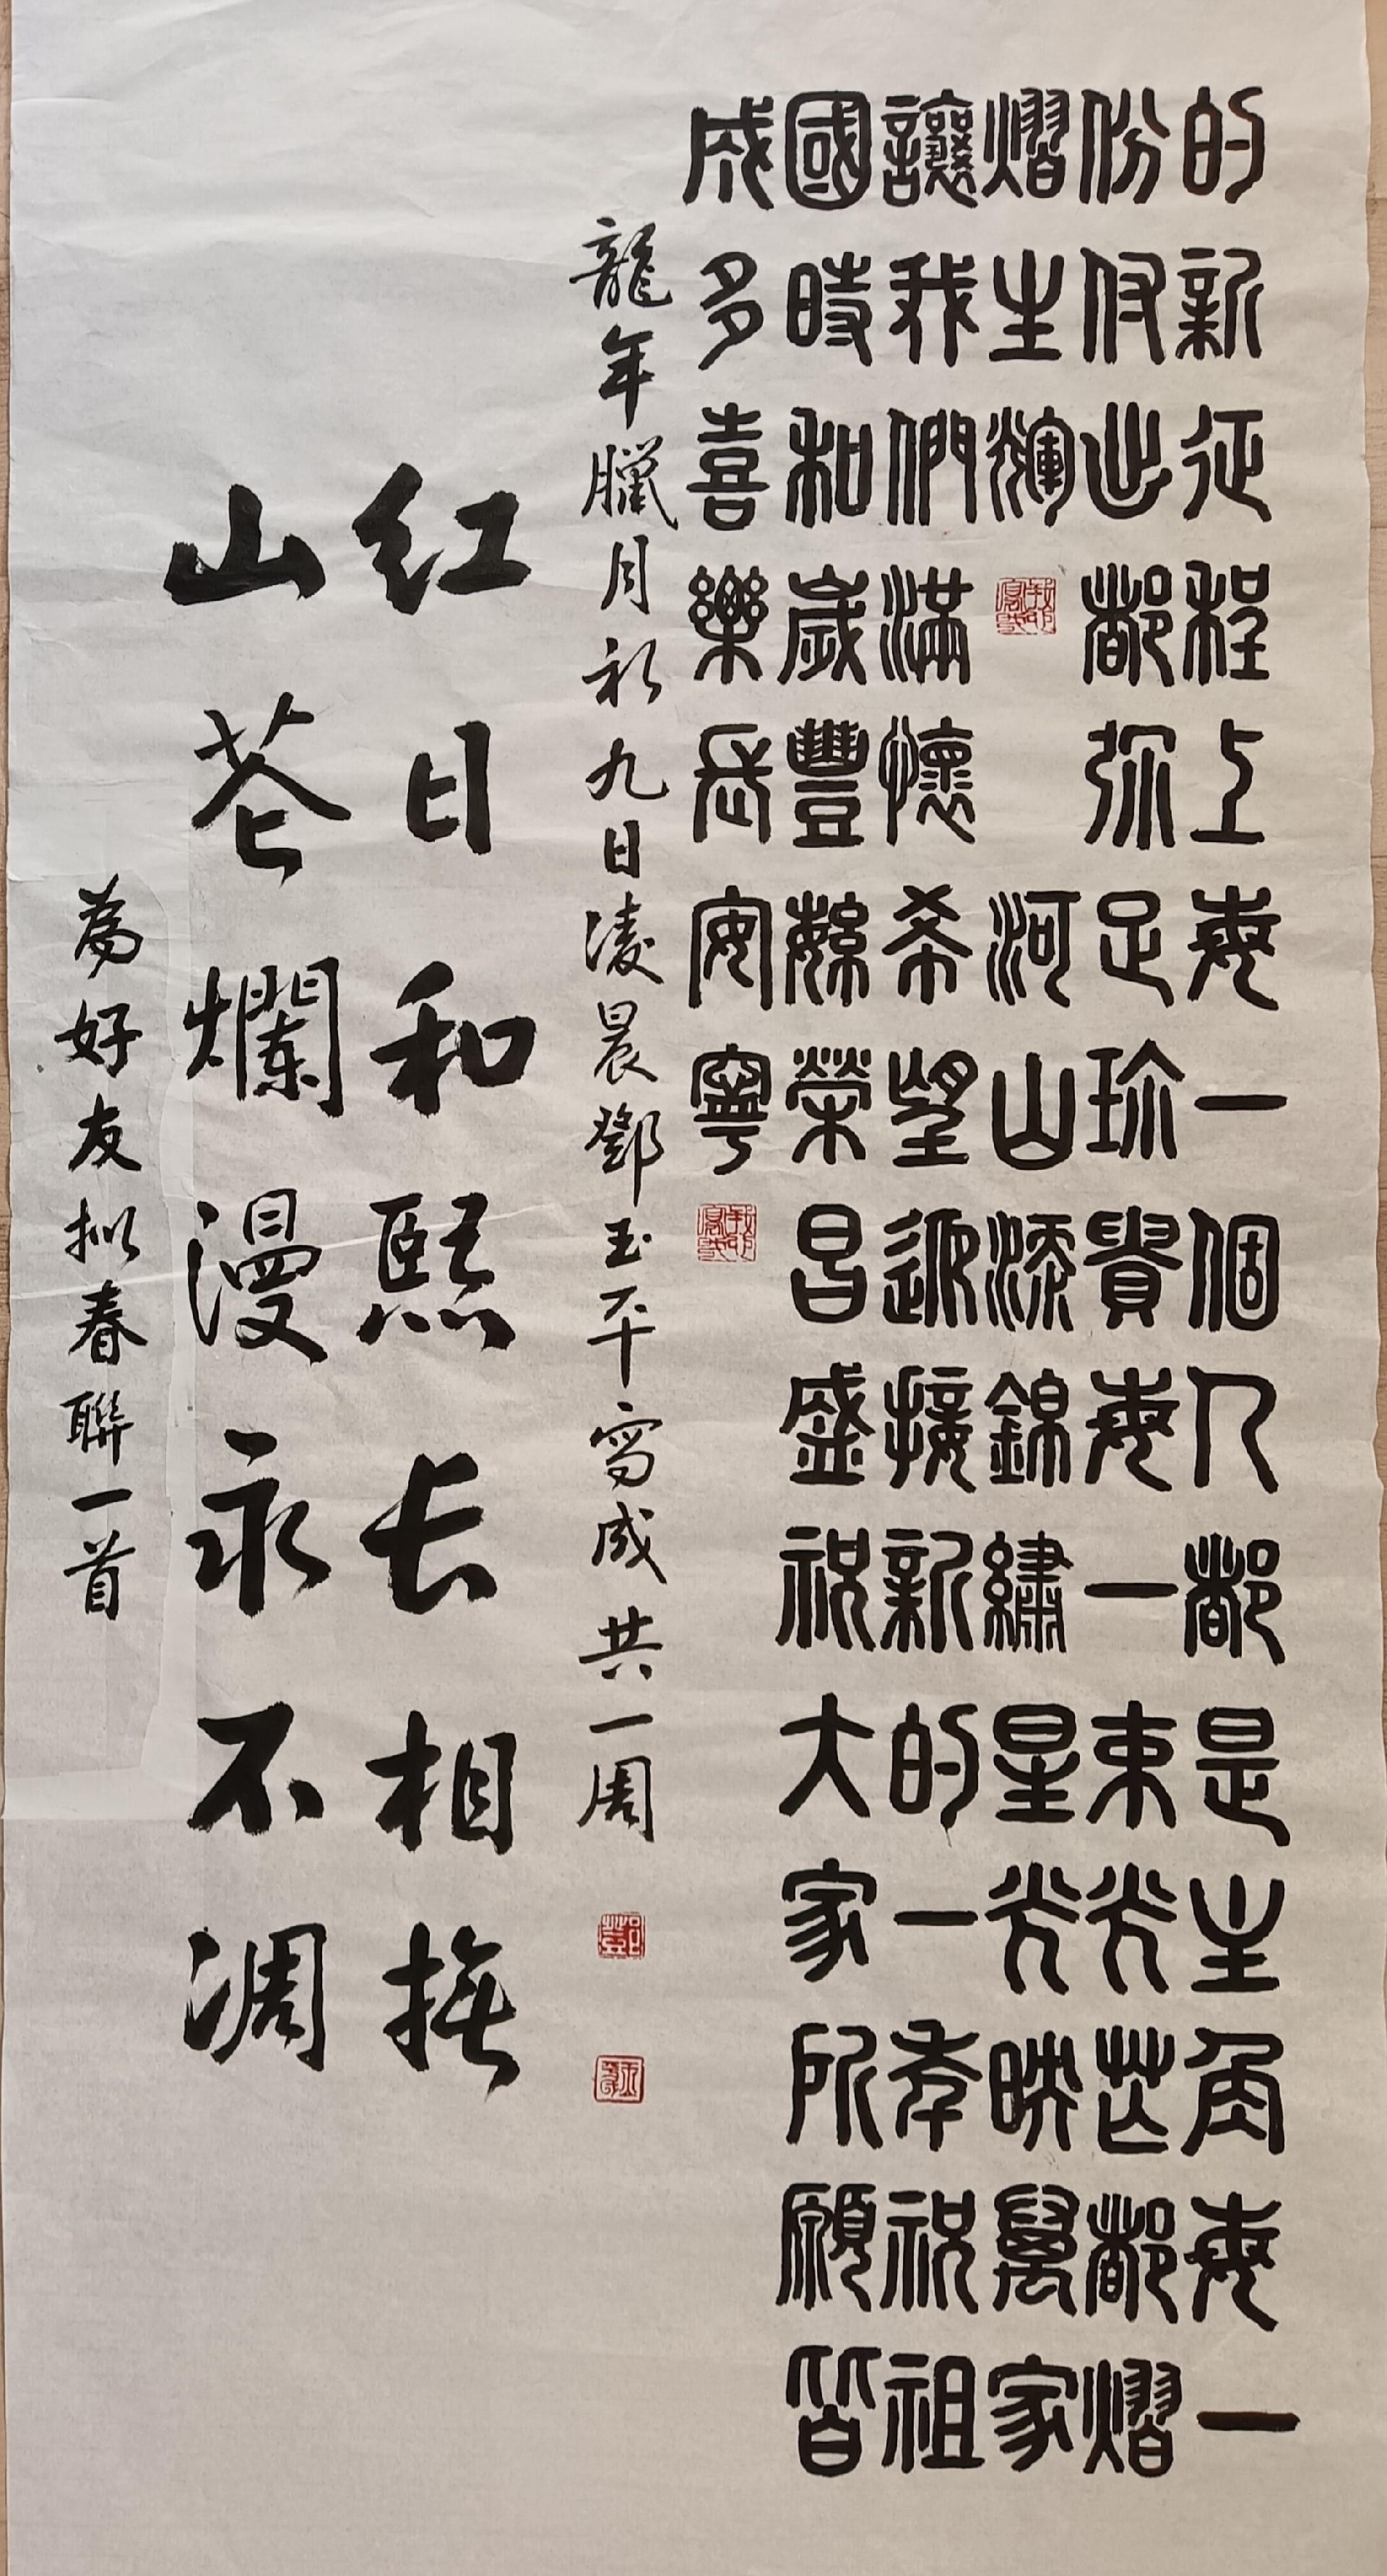 的新征程上每一個人都是主角每一
份付出都弥足珍貴每一束光芒都熠
熠生輝河山添錦繡星光映萬家
讓我們滿懷希望迎接新的一年祝祖
國時和歲豐繁榮昌盛祝大家所願皆
成多喜樂長安寧
龍年臘月初九日淩晨鄧玉平寫成共一周
红日和熙长相
山花爛漫永不凋
為好友拟春聯一首